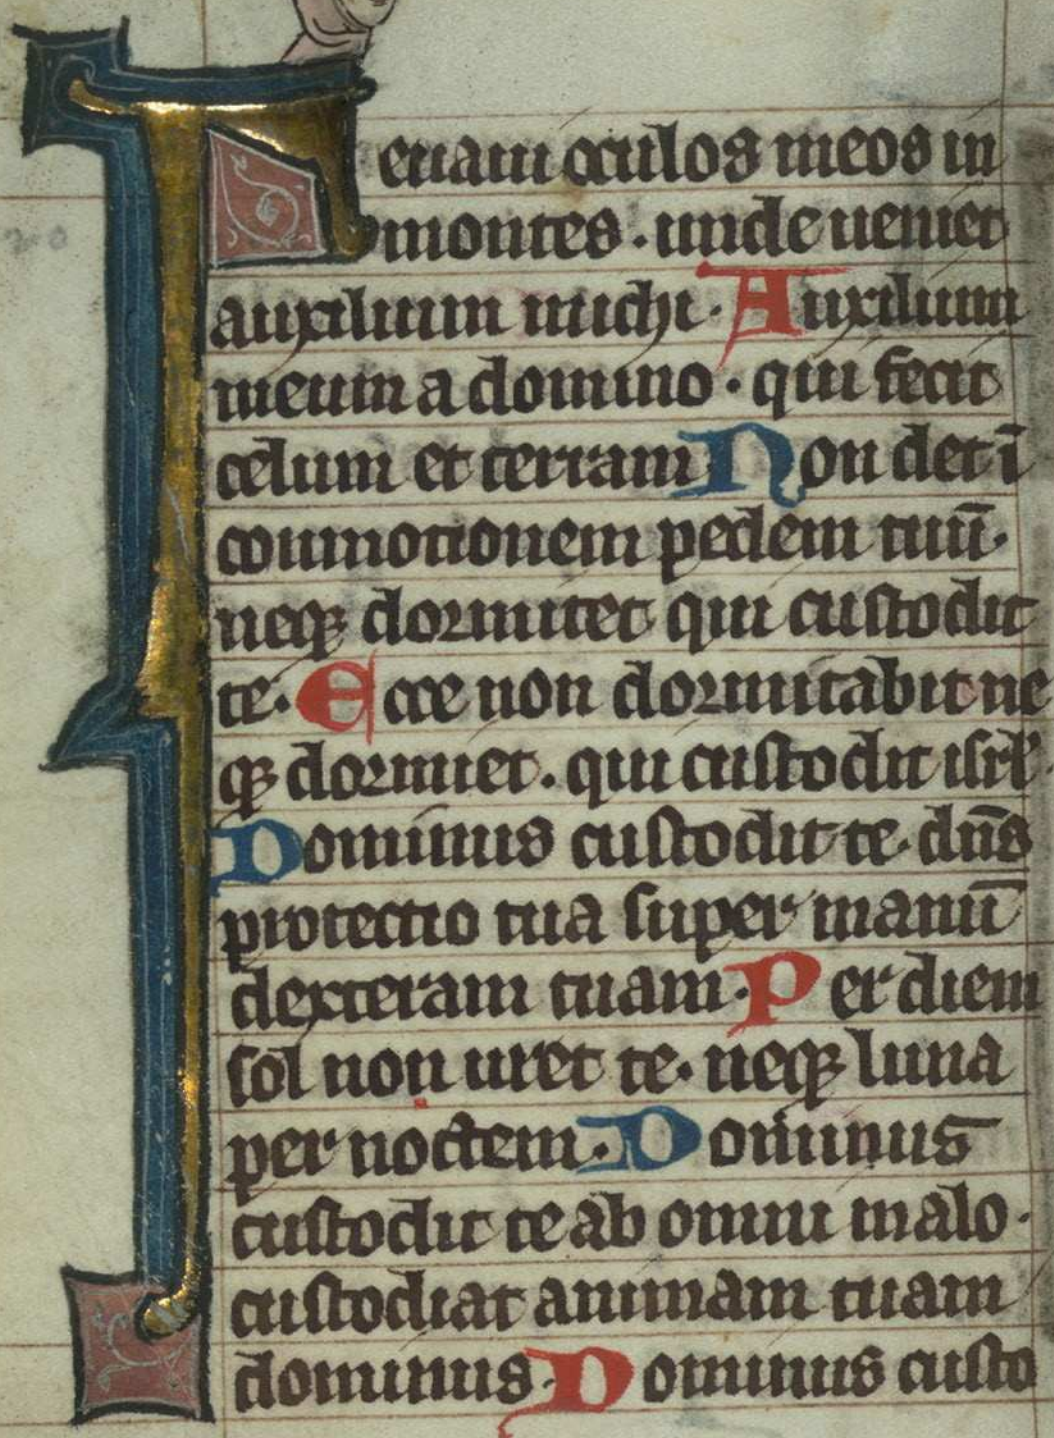 Leuam oculos meos in
montes . unde ueniet
auxilium michi · Auxilium
meum a domino · qui fecit
celum et terram Non det ī
commotionem pedem tuū ·
neqꝫ dormitet qui custodit
te · Ecce non dormitabit ne
qꝫ dormiet . qui custodit isrl' ·
Dominus custodit te · dn̄s
protectio tua super manū
dexteram tuam · Per diem
sol non uret te · neqꝫ luna
per noctem · Dominus
custodit te ab omni malo ·
custodiat animam tuam
dominus · Dominus custo